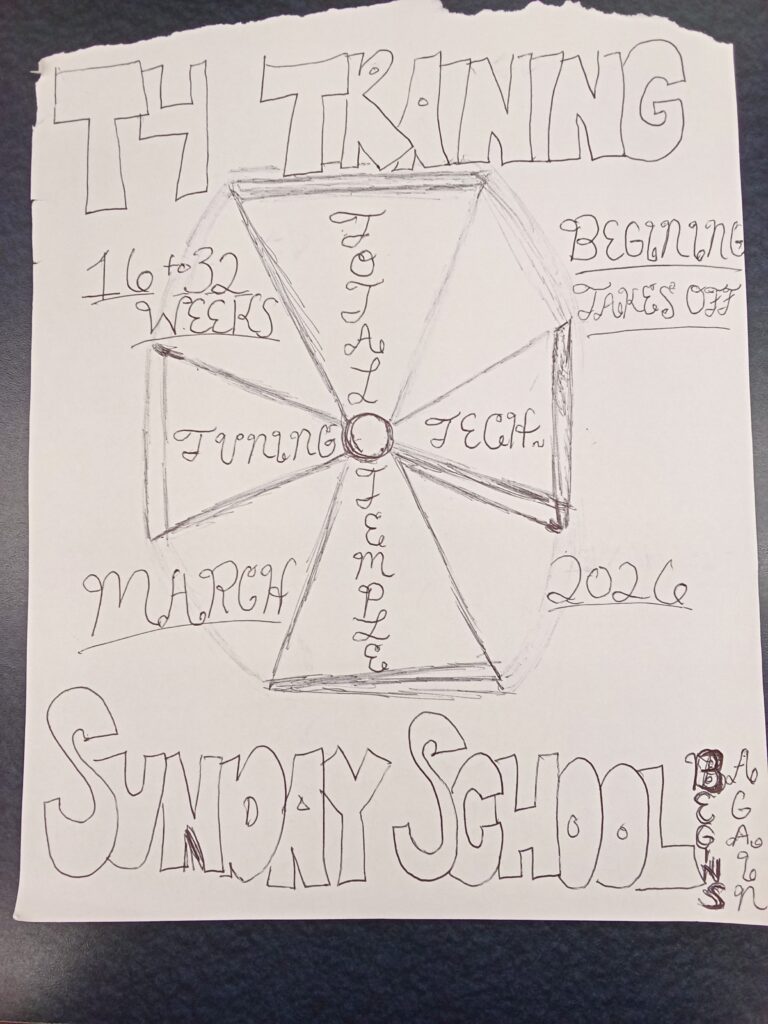 T4 TRAINING
16 to 32
WEEKS
BEGINING
TAKES OFF
TOTAL
TUNING
TECH~
TEMPLE
MARCH
2026
SUNDAY SCHOOL
BEGINS
AGAIN